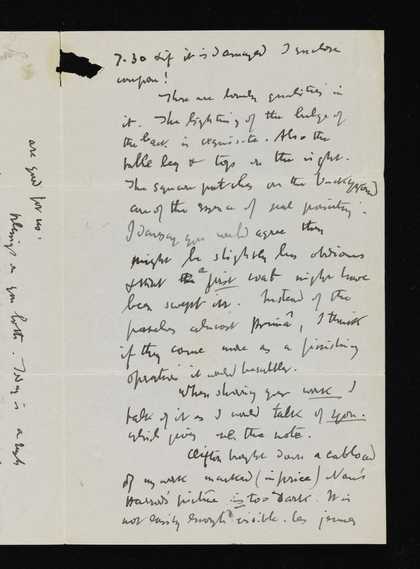 7.30 & if it is damaged I enclose
coupon!
There are lovely qualities in
it. The lighting of the bulge of
the back is exquisite. Also the
table leg & legs on the right.
The square patches on the
are of the essence of real painting.
I daresay you would agree they
might be slightly less obvious
& that a first coat might have
been swept in. Instead of the
patches almost "prima", I think
if they come more as a finishing
operation it would be subtler.
When showing your work I
talk of it as I would talk of you.
which gives the note.
Clifton bought down a cabload
of my work marked (in price)
Harrods picture is too dark. It is
not easily enough visible. Les jeunes
are good for us!
Blessings on you both. Today is a